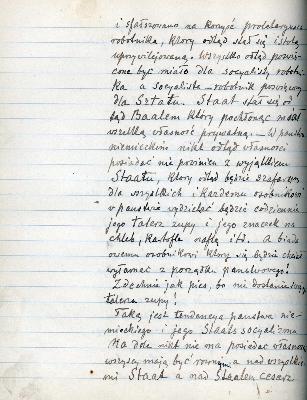 i sfałszowano na korzyść proletaryusza
robotnika, który odtąd stał się istotą
uprzywilejowaną. Wszystko odtąd
być miało dla socyalisty robotni
ka a socyalista – robotnik
dla Sztatu. Staat stał się od
tąd Baalem który pochłonąć miał
wszelką własność prywatną. – W państwie
niemieckiem nikt odtąd własności
posiadać nie powinien z wyjątkiem
Staatu, który odtąd będzie szafarzem
dla wszystkich i każdemu osobnikowi
w państwie wydzielać będzie codziennie
jego talerz zupy i jego znaczek na
chleb, kartofle naftę itd. A biada
owemu osobnikowi który się będzie chciał
wyłamać z porządku państwowego!
Zdechnie jak pies, bo nie dostanie swego
talerza zupy!
Taką jest tendencya państwa nie-
mieckiego i jego Staats socyalizmu
Na dole nikt nie ma posiadać własności
wszyscy mają być równymi a nad wszystkie
mi Staat a nad Staatem cesarz